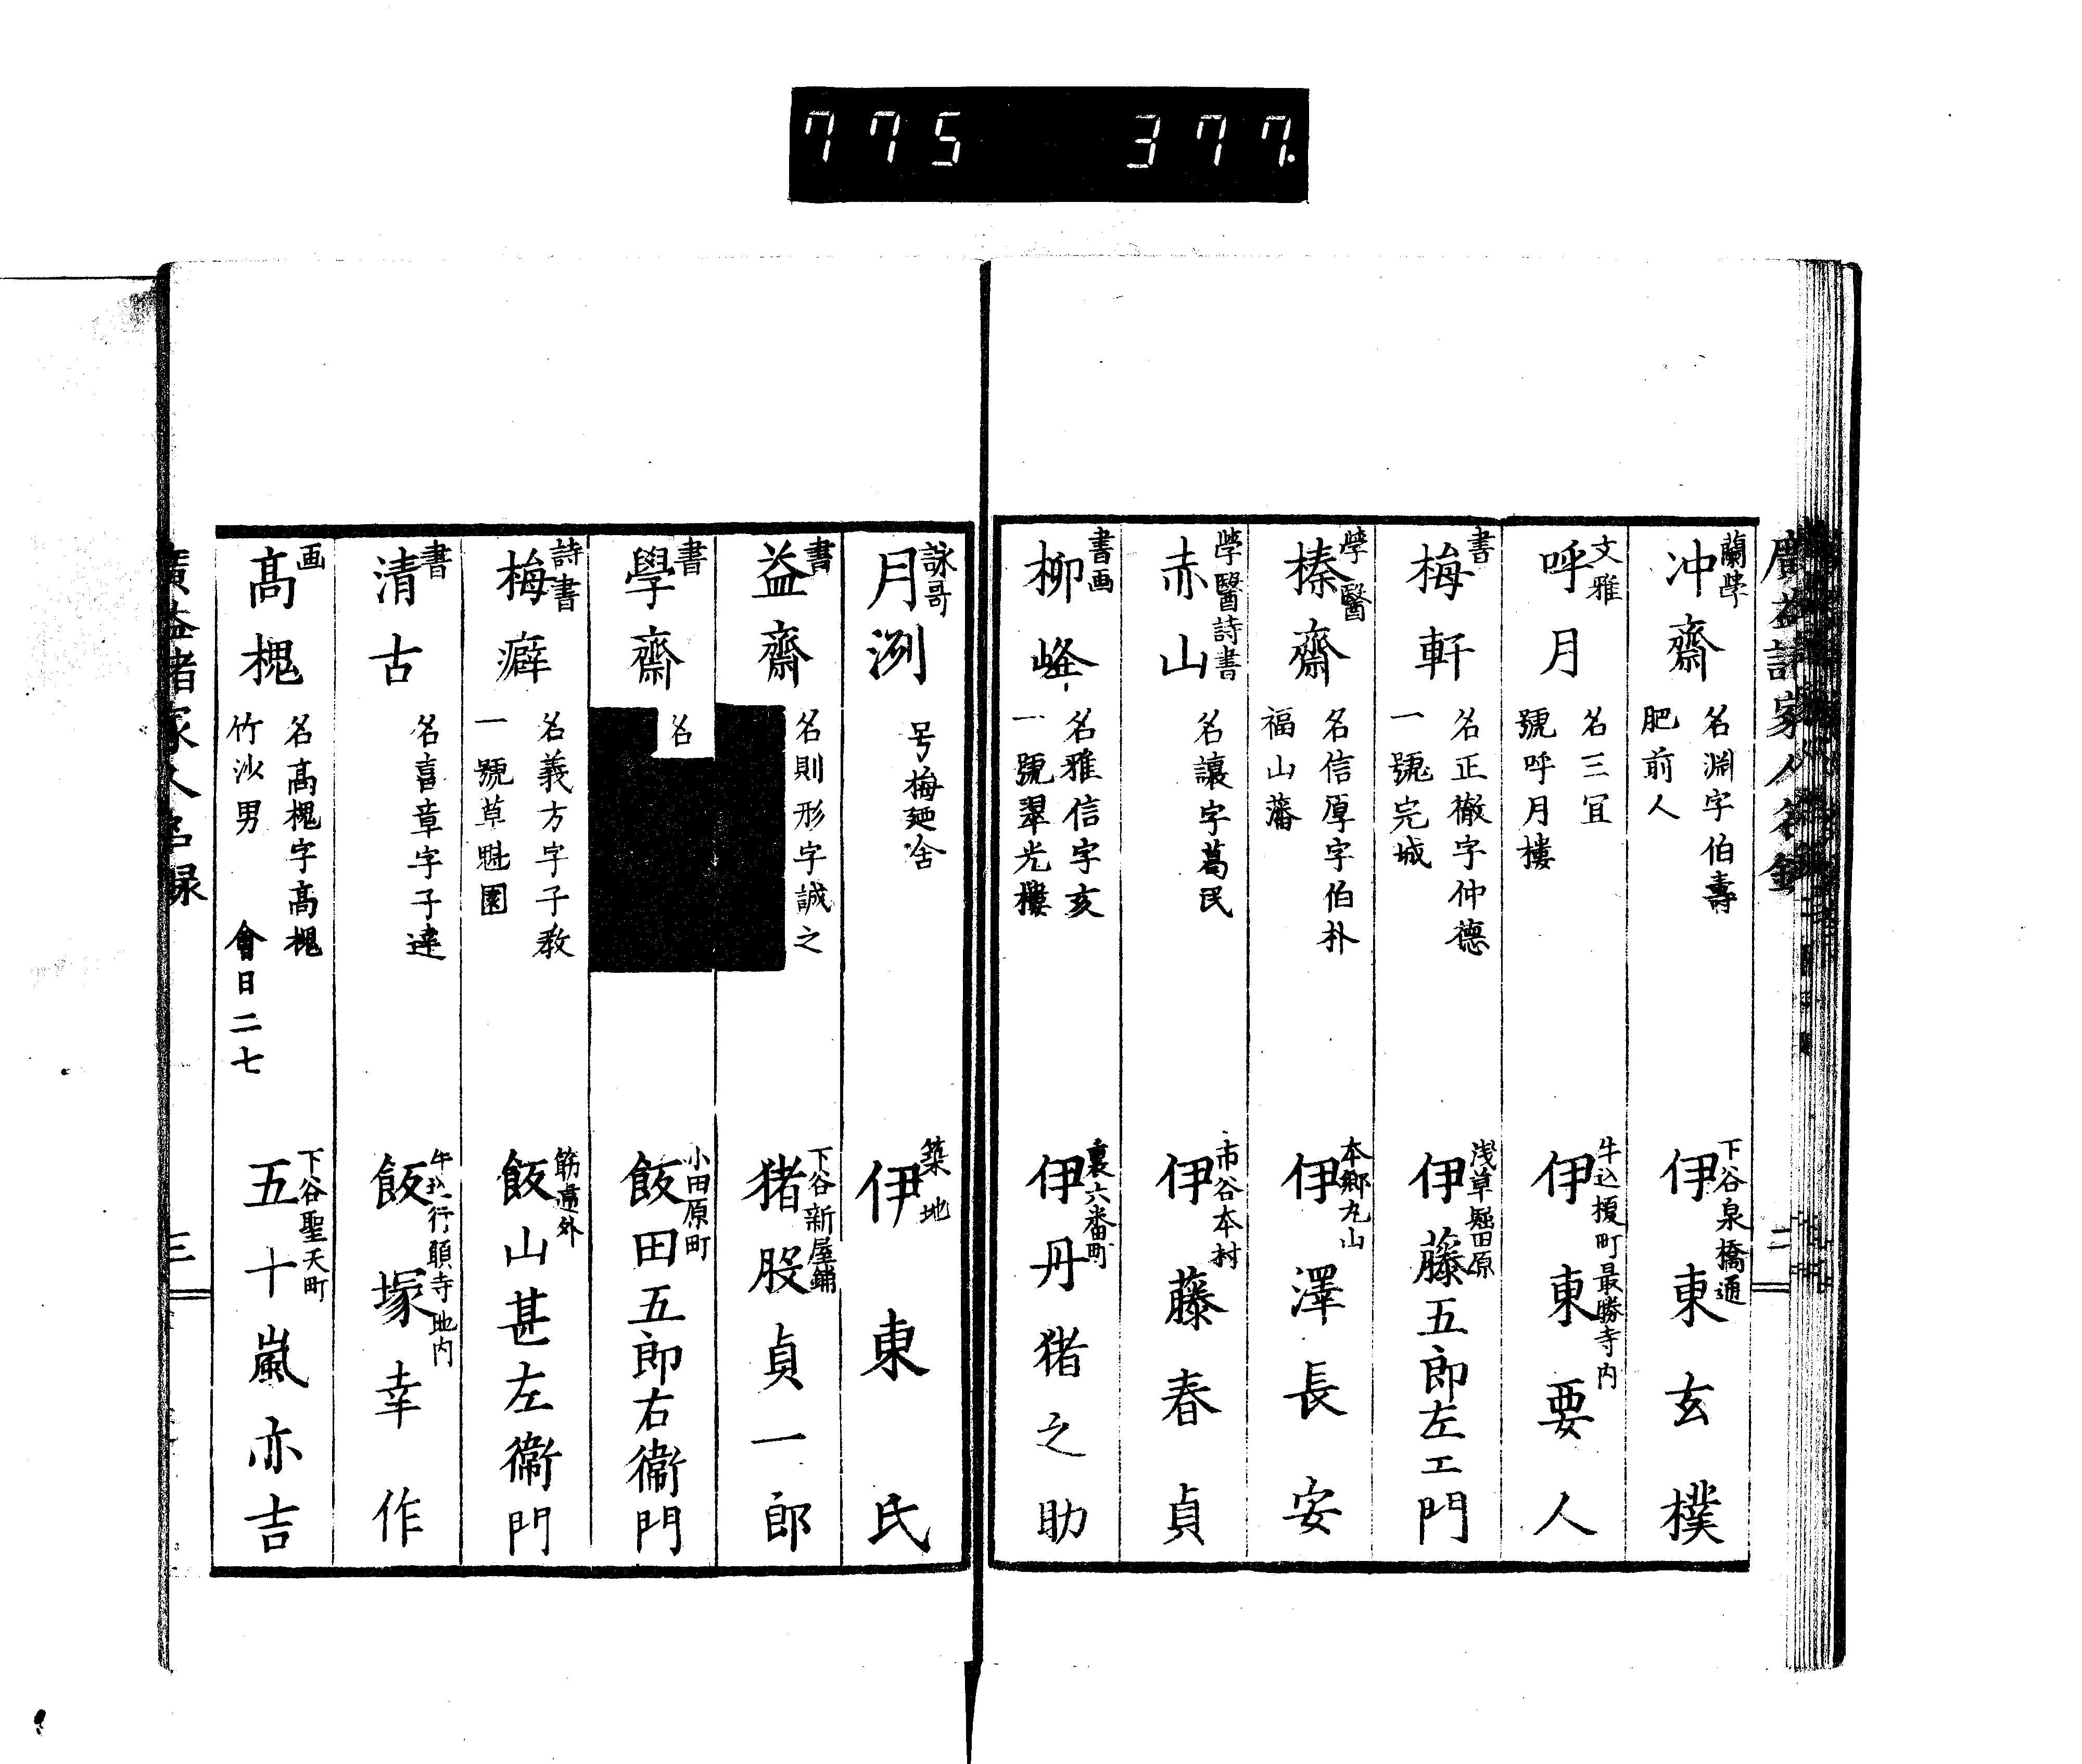 775 377.
廣益諸家人名録
二
蘭學
冲齋
名淵字伯壽
肥前人
下谷泉橋通
伊東玄樸
文雅
呼月
名三冝
號呼月樓
牛込榎町最勝寺内
伊東要人
書
梅軒
名正徹字仲德
一號完城
浅草堀田原
伊藤五郎左エ門
學醫
榛齋
名信厚字伯朴
福山藩
本郷丸山
伊澤長安
學醫詩書
赤山
名讓字萬民
市谷本村
伊藤春貞
書画
柳峰
名雅信字亥
一號翠光樓
裏六番町
伊丹猪之助
詠哥
月洌
号梅廼舎
築地
伊東氏
書
益齋
名則形字誠之
下谷新屋鋪
猪股貞一郎
書
學齋
名
小田原町
飯田五郎右衞門
詩書
梅癖
名義方字子教
一號草魁園
筋違外
飯山甚左衞門
書
清古
名章字子達
牛込行願寺地内
飯塚幸作
画
髙槐
名髙槐字髙槐
竹沙男 會日二七
下谷聖天町
五十嵐亦吉
廣益諸家人名録
三